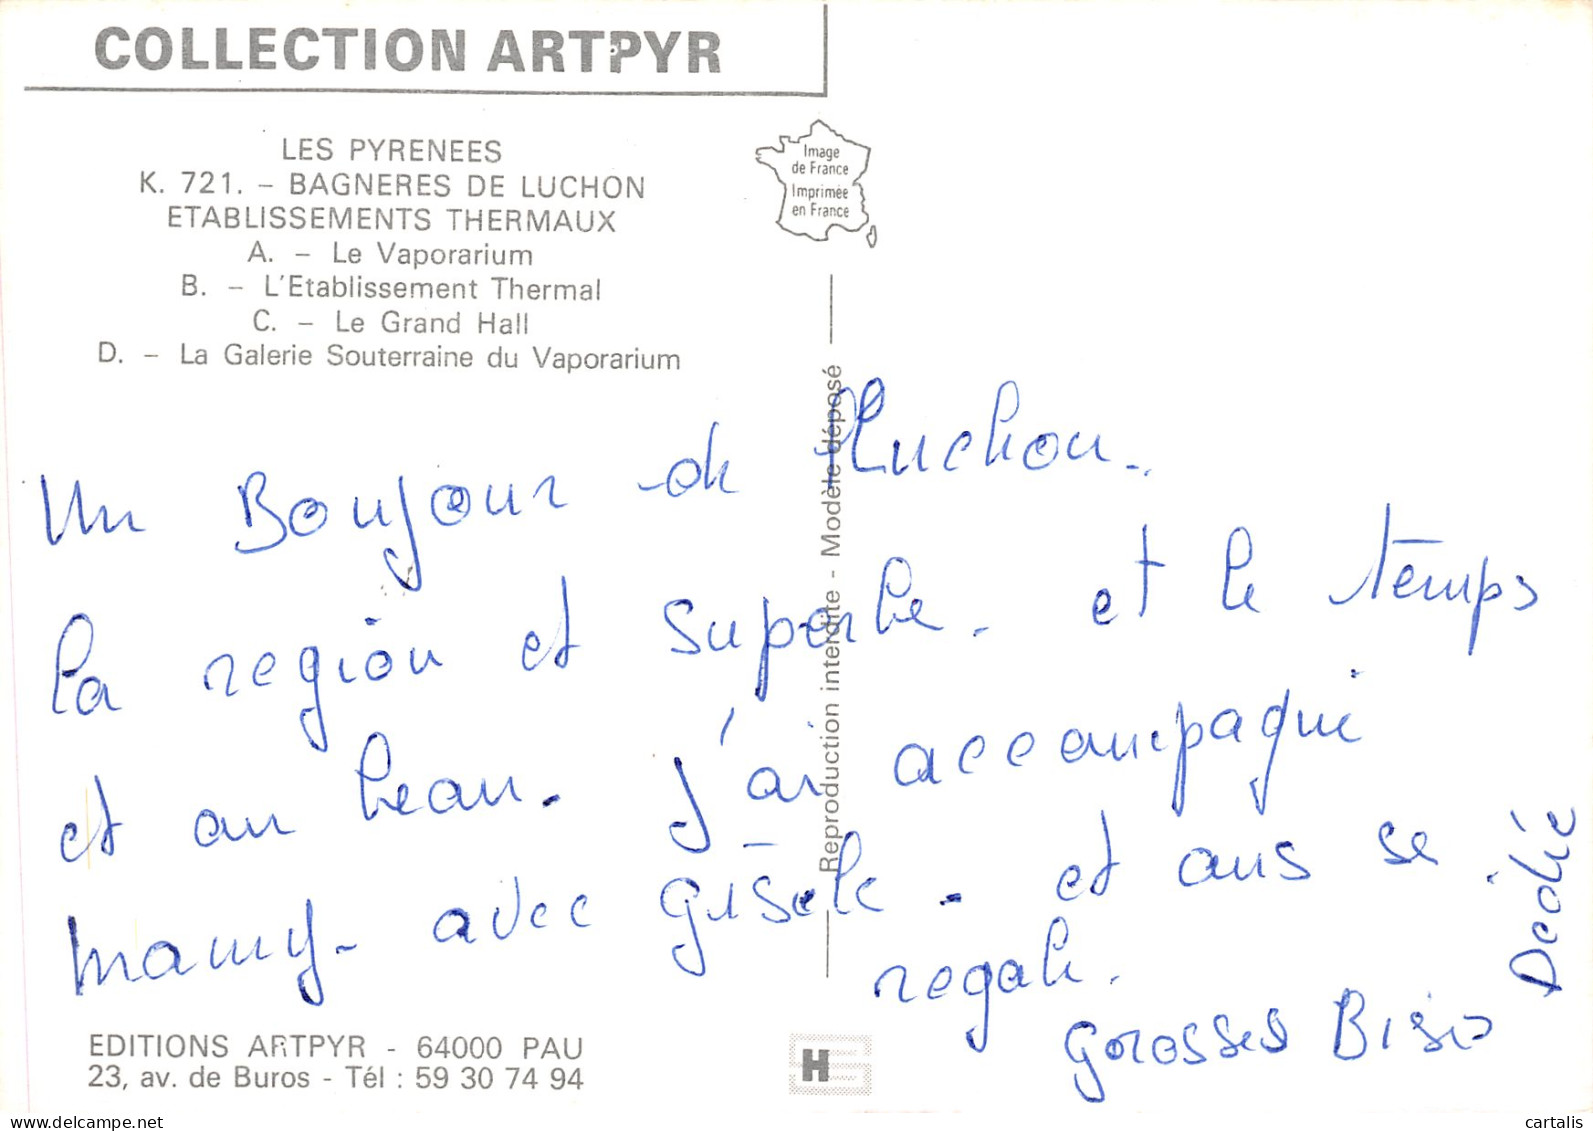 COLLECTION ARTPYR
LES PYRENEES
K. 721. - BAGNERES DE LUCHON
ETABLISSEMENTS THERMAUX
A. - Le Vaporarium
B. - L'Etablissement Thermal
C. - Le Grand Hall
D. - La Galerie Souterraine du Vaporarium
Image
de France
Imprimée
en France
Reproduction interdite - Modèle déposé
Un Boujour de Luchon..
la region et superbe. et le temps
et au beau. J'ai accompagni
mamy - avec Gisele - et ans se
regale.
Grosses Biso
Dedée
EDITIONS ARTPYR - 64000 PAU
23, av. de Buros - Tél : 59 30 74 94
H
delcampe.net
cartalis